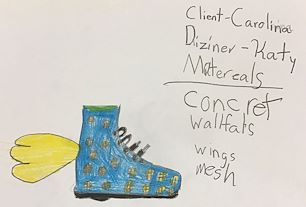 Client-Carolina
Diziner-Katy
Matereals
concret
wallfats
wings
mesh